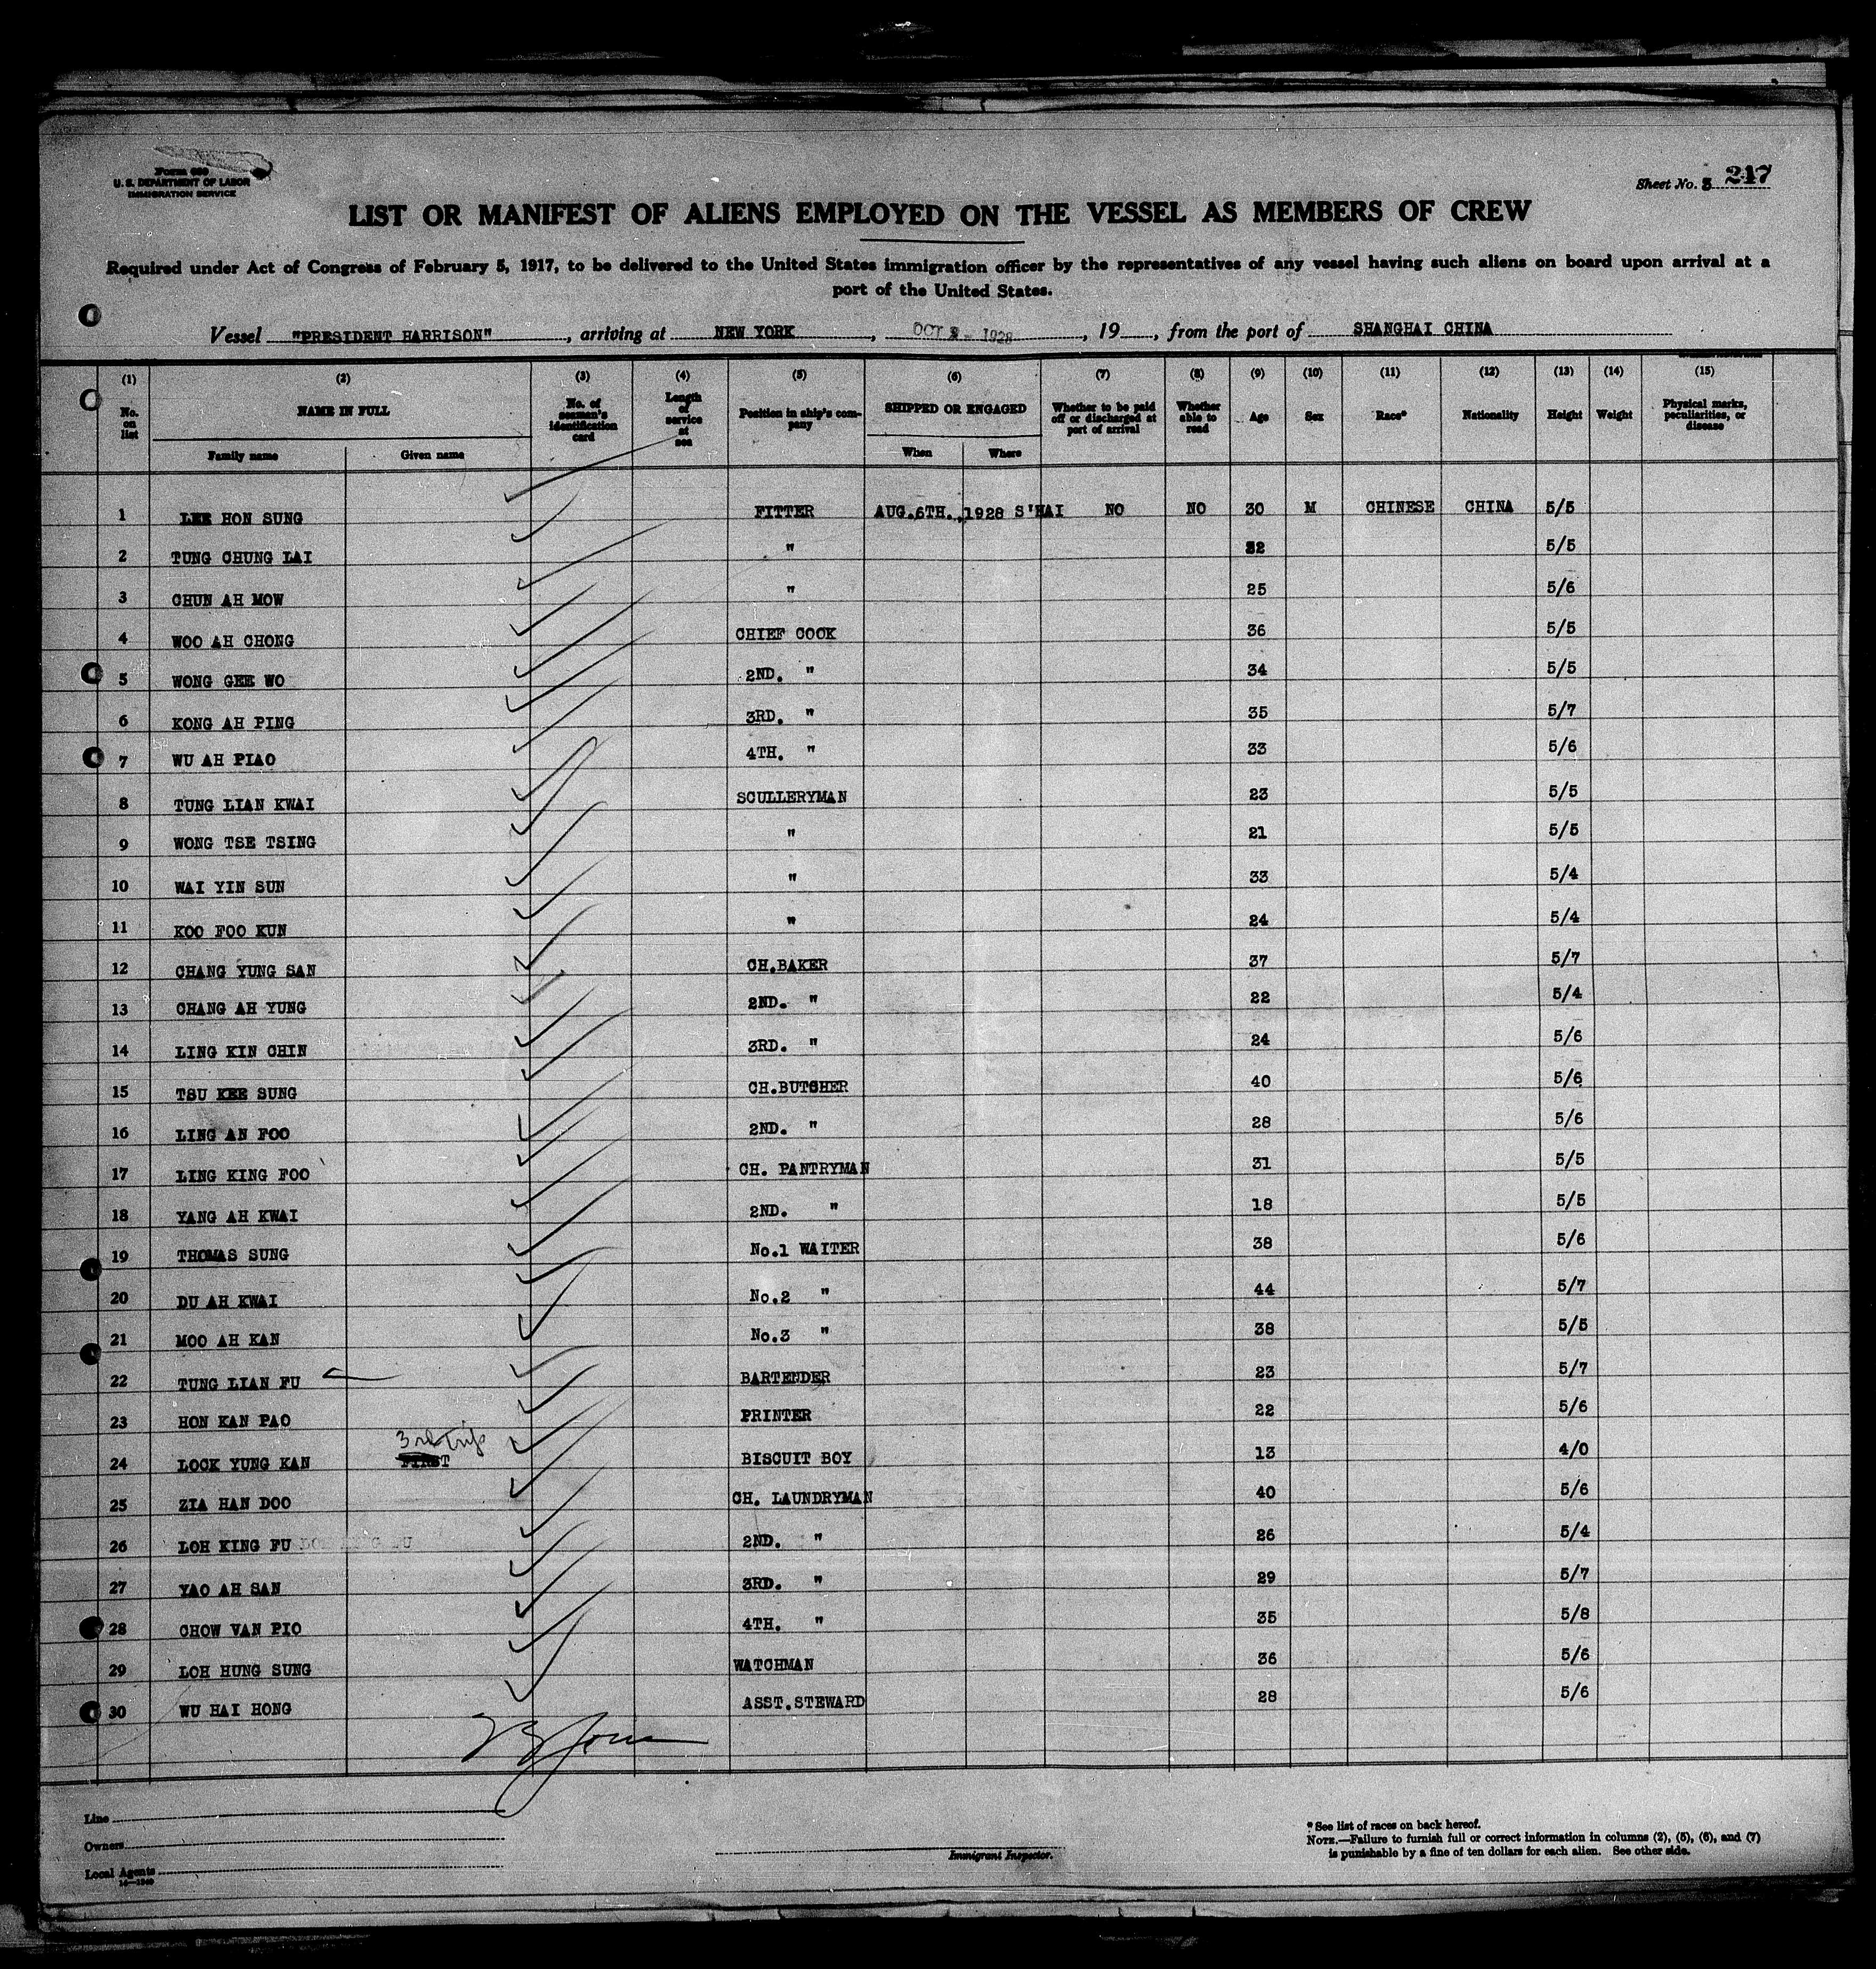 Form 689
U. S. DEPARTMENT OF LABOR
IMMIGRATION SERVICE
Sheet No. 3 247
LIST OR MANIFEST OF ALIENS EMPLOYED ON THE VESSEL AS MEMBERS OF CREW
Required under Act of Congress of February 5, 1917, to be delivered to the United States immigration officer by the representatives of any vessel having such aliens on board upon arrival at a
port of the United States.
Vessel "PRESIDENT HARRISON", arriving at NEW YORK, OCT 1928, 19, from the port of SHANGHAI CHINA
(1) (2) (3) (4) (5) (6) (7) (8) (9) (10) (11) (12) (13) (14) (15)
No. on list NAME IN FULL No. of seaman's identification card Length of service at sea Position in ship's company SHIPPED OR ENGAGED Whether to be paid off or discharged at port of arrival Whether able to read Age Sex Race* Nationality Height Weight Physical marks, peculiarities, or disease
Family name Given name When Where
1 LEE HON SUNG FITTER AUG.6TH.,1928 S'HAI NO NO 30 M CHINESE CHINA 5/5
2 TUNG CHUNG LAI " 32 5/5
3 CHUN AH MOW " 25 5/6
4 WOO AH CHONG CHIEF COOK 36 5/5
5 WONG GEE WO 2ND. " 34 5/5
6 KONG AH PING 3RD. " 35 5/7
7 WU AH PIAO 4TH. " 33 5/6
8 TUNG LIAN KWAI SCULLERYMAN 23 5/5
9 WONG TSE TSING " 21 5/5
10 WAI YIN SUN " 33 5/4
11 KOO FOO KUN " 24 5/4
12 CHANG YUNG SAN CH.BAKER 37 5/7
13 CHANG AH YUNG 2ND. " 22 5/4
14 LING KIN CHIN 3RD. " 24 5/6
15 TSU KEE SUNG CH.BUTCHER 40 5/6
16 LING AN FOO 2ND. " 28 5/6
17 LING KING FOO CH. PANTRYMAN 31 5/5
18 YANG AH KWAI 2ND. " 18 5/5
19 THOMAS SUNG No.1 WAITER 38 5/6
20 DU AH KWAI No.2 " 44 5/7
21 MOO AH KAN No.3 " 38 5/5
22 TUNG LIAN FU BARTENDER 23 5/7
23 HON KAN PAO PRINTER 22 5/6
3rd Trip
24 LOCK YUNG KAN FIRST BISCUIT BOY 13 4/0
25 ZIA HAN DOO CH. LAUNDRYMAN 40 5/6
26 LOH KING FU 2ND. " 26 5/4
27 YAO AH SAN 3RD. " 29 5/7
28 CHOW VAN PIO 4TH. " 35 5/8
29 LOH HUNG SUNG WATCHMAN 36 5/6
30 WU HAI HONG ASST.STEWARD 28 5/6
Line
Owners
Local Agents
Immigrant Inspector.
* See list of races on back hereof.
NOTE.—Failure to furnish full or correct information in columns (2), (5), (6), and (7)
is punishable by a fine of ten dollars for each alien. See other side.